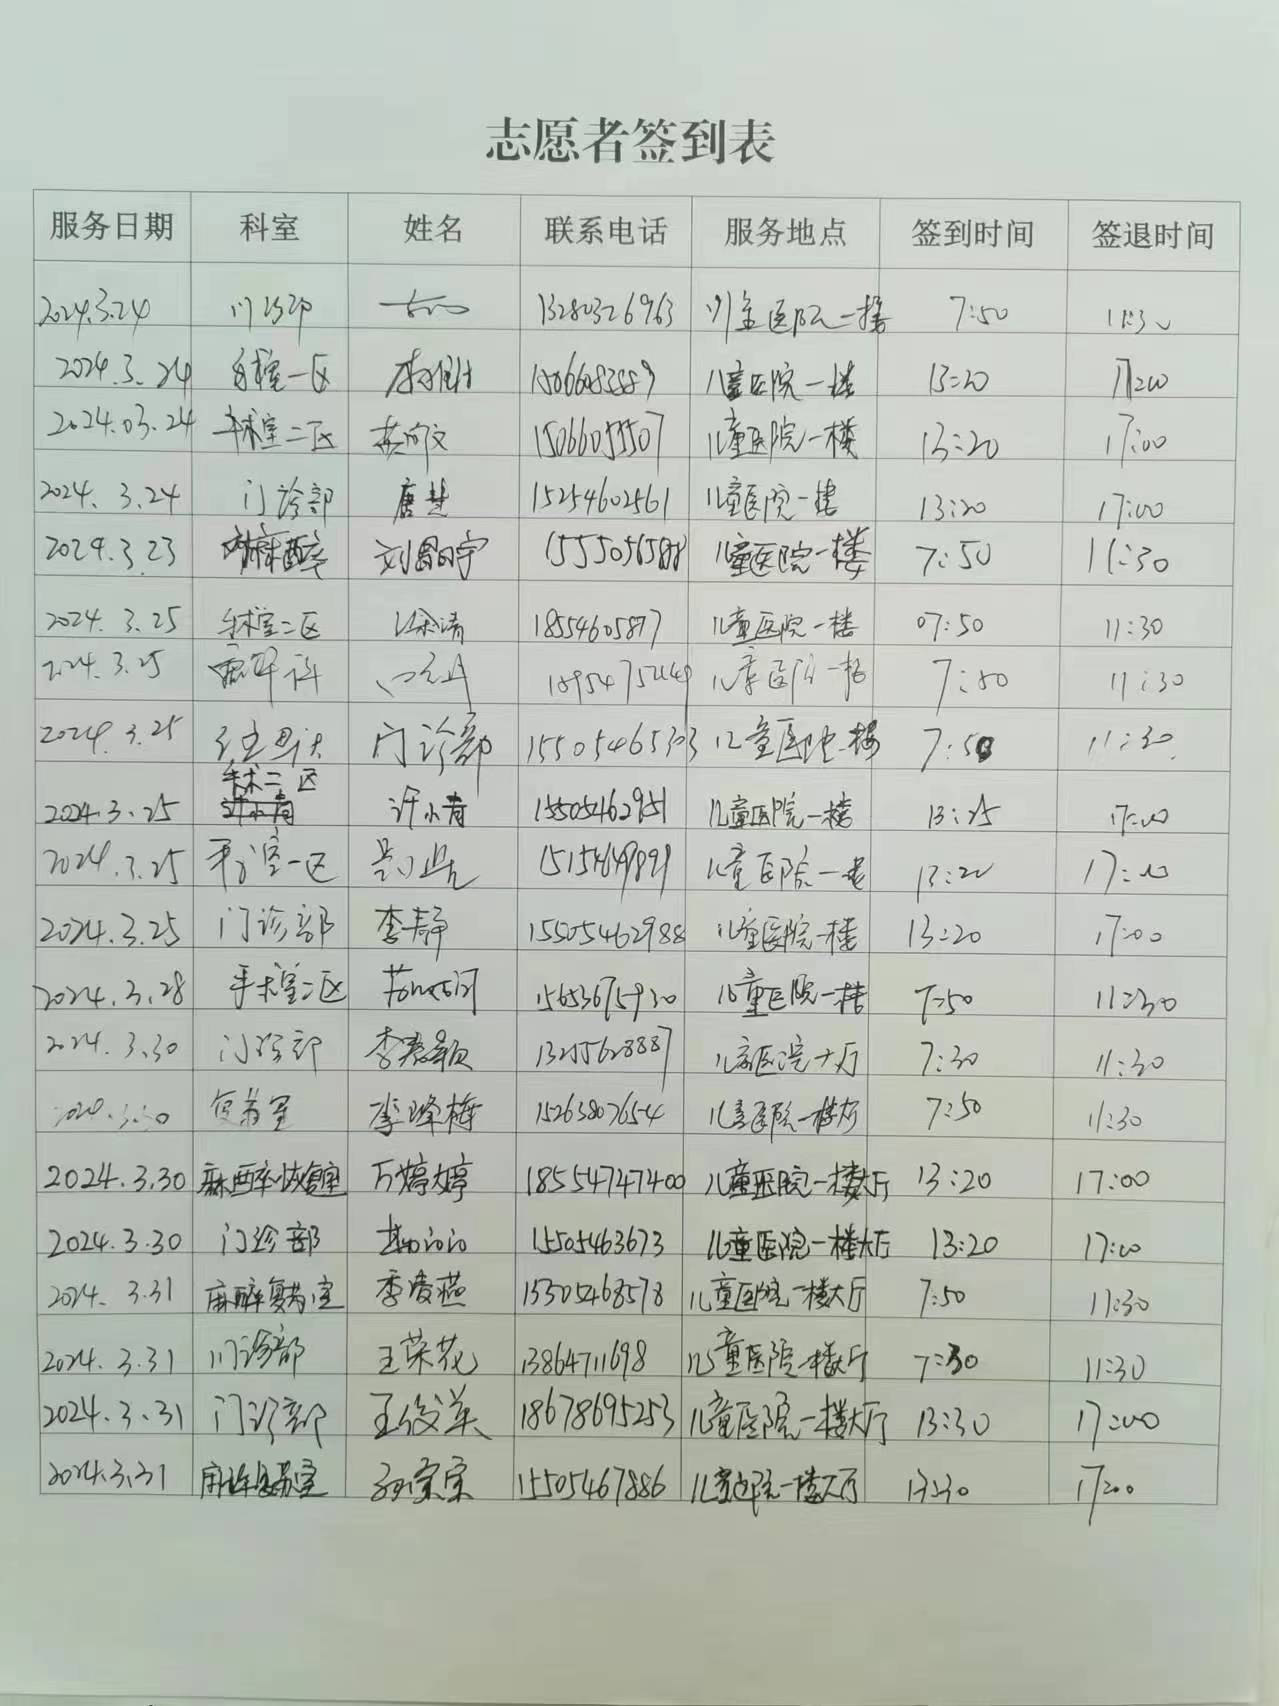 志愿者签到表
服务日期 科室 姓名 联系电话 服务地点 签到时间 签退时间
2024.3.24 门诊部 13280326963 儿童医院一楼 7:50 11:30
2024.3.24 手术室一区 儿童医院一楼 13:20 17:00
2024.03.24 手术室二区 15066055507 儿童医院一楼 13:20 17:00
2024.3.24 门诊部 唐慧 15254602561 儿童医院一楼 13:20 17:00
2024.3.23 刘 宇 儿童医院一楼 7:50 11:30
2024.3.25 手术室二区 徐清 18554605877 儿童医院一楼 07:50 11:30
2024.3.25 儿童医院一楼 7:50 11:30
2024.3.25 门诊部 15505465303 儿童医院一楼 7:50 11:30
2024.3.25 手术二区 许小青 15505462951 儿童医院一楼 13:25 17:00
2024.3.25 手术室一区 儿童医院一楼 13:20 17:00
2024.3.25 门诊部 李静 15505462988 儿童医院一楼 13:20 17:00
2024.3.28 手术室二区 15653675930 儿童医院一楼 7:50 11:30
2024.3.30 门诊部 李 颖 儿童医院大厅 7:30 11:30
2024.3.30 复苏室 李峰梅 15263807654 儿童医院一楼大厅 7:50 11:30
2024.3.30 麻醉恢复室 万婷婷 18554747400 儿童医院一楼大厅 13:20 17:00
2024.3.30 门诊部 15505463673 儿童医院一楼大厅 13:20 17:00
2024.3.31 麻醉复苏室 李凌燕 儿童医院一楼大厅 7:50 11:30
2024.3.31 门诊部 王荣花 13864711698 儿童医院一楼大厅 7:30 11:30
2024.3.31 门诊部 王俊英 18678695253 儿童医院一楼大厅 13:30 17:00
2024.3.31 麻醉复苏室 孙宗宗 15505467886 儿童医院一楼大厅 13:30 17:00